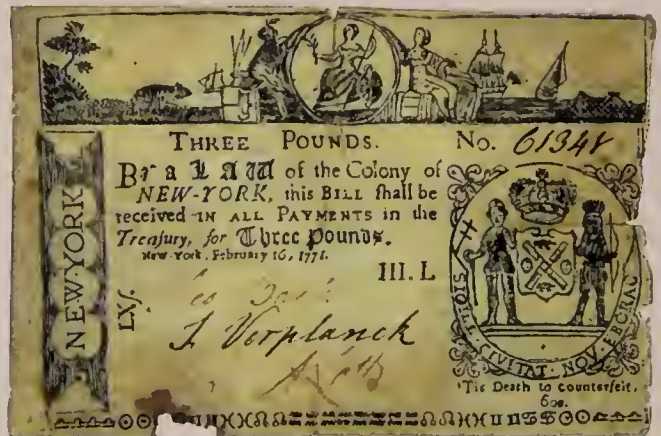 THREE POUNDS. No. 61348
By a LAW of the Colony of
NEW-YORK, this BILL ſhall be
received IN ALL PAYMENTS in the
Treaſury, for Three Pounds.
New-York, February 16, 1771.
III.L
NEW-YORK
LXſ.
S. Verplanck
SIGILL. CIVITAT. NOV. EBORAC
'Tis Death to counterfeit.
60s.